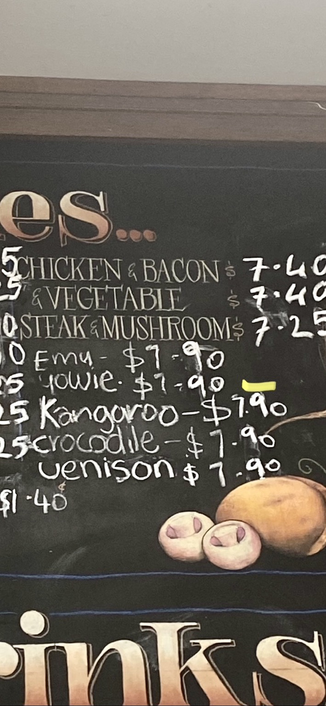 es...
5 CHICKEN & BACON $ 7.40
5 & VEGETABLE $ 7.40
0 STEAK & MUSHROOM $ 7.25
0 Emu - $7.90
25 Yowie. $7.90
25 Kangaroo - $7.90
25 crocodile - $7.90
venison $7.90
$1.40¢
rinks